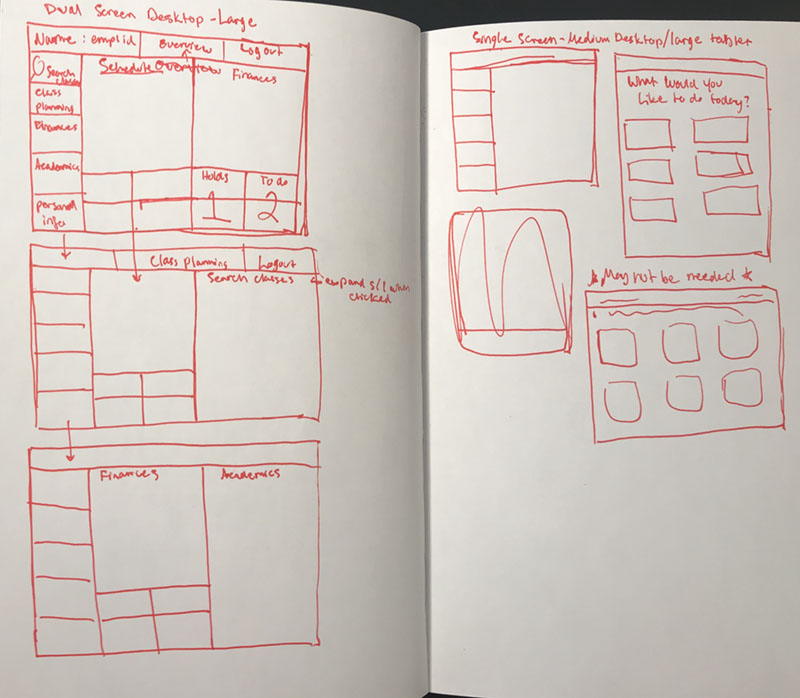 Dual Screen Desktop - Large
Name : emplid
Overview
Logout
Search classes
Schedule Overview
Finances
Class
planning
Finances
Academics
personal
info
Holds
1
To do
2
Class planning
Logout
Search classes
← expand s/l when
clicked
Finances
Academics
Single Screen - Medium Desktop/large tablet
What would you
like to do today?
* May not be needed *